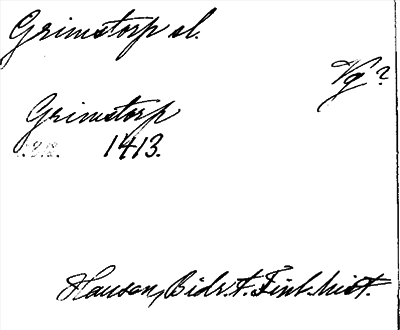 Grimstorp sl.
Vg?
Grimstorp
1413.
Hausen, Bidr. t. Finl. hist.